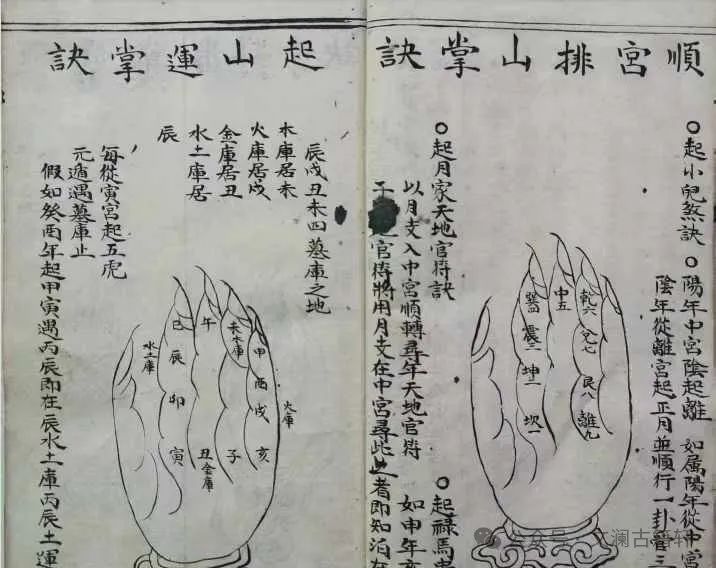 順宮排山掌訣
○起小兒煞訣
○陽年中宮陰起離 如屬陽年從中宮
陰年從離宮起正月並順行一卦管三
乾六
兌七
艮八
離九
中五
巽四
震三
坤二
坎一
○起月家天地官符訣
以月支入中宮順轉尋年天地官符 如申年
官符將用月支在中宮尋此 者即知泊在
○起祿馬
起山運掌訣
辰戌丑未四墓庫之地
木庫居未
火庫居戌
金庫居丑
水土庫居
辰
每從寅宮起五虎
元遁遇墓庫止
假如癸酉年起甲寅遇丙辰即在辰水土庫丙辰土運
火庫
申
酉
戌
亥
未木庫
子
午
丑金庫
巳
辰
卯
寅
水土庫
公众号 · 文澜古籍轩